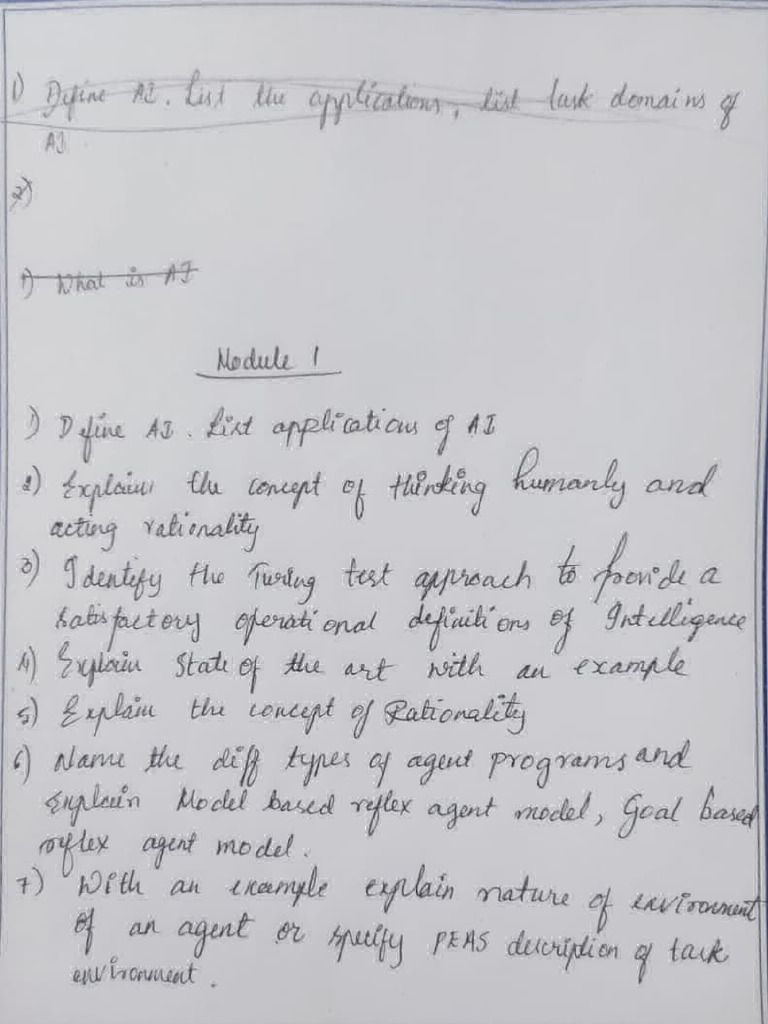 1) Define AI. List the applications, list task domains of
AI
2)
1) What is AI
Module 1
1) Define AI. List applications of AI
2) Explain the concept of thinking humanly and
acting rationality
3) Identify the Turing test approach to provide a
satisfactory operational definitions of Intelligence
4) Explain State of the art with an example
5) Explain the concept of Rationality
6) Name the diff types of agent programs and
Explain Model based reflex agent model, Goal based
reflex agent model.
7) With an example explain nature of environment
of an agent or specify PEAS description of task
environment.